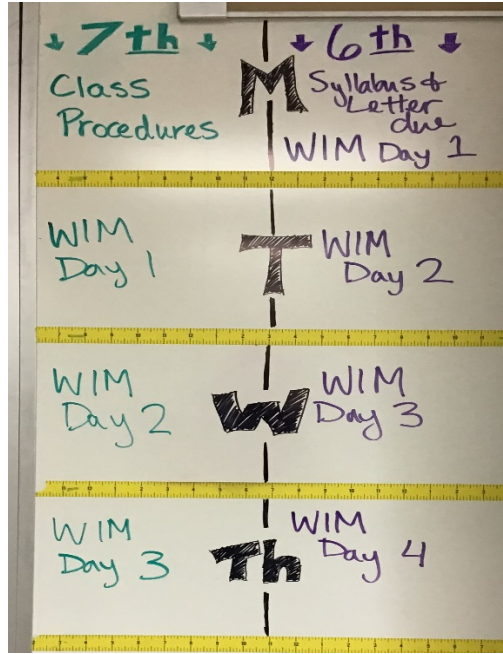 7th
Class
Procedures
M
6th
Syllabus &
Letter
due
WIM Day 1
WIM
Day 1
T
WIM
Day 2
WIM
Day 2
W
WIM
Day 3
WIM
Day 3
Th
WIM
Day 4